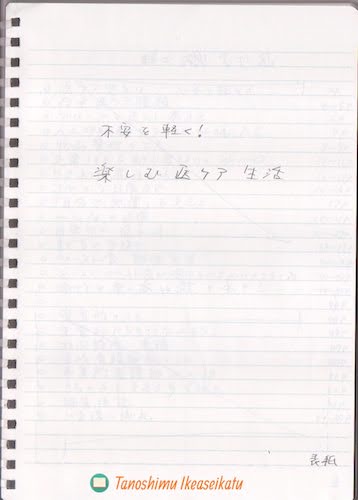 不安を軽く!
楽しむ 医ケア 生活
表紙
Tanoshimu Ikeaseikatu